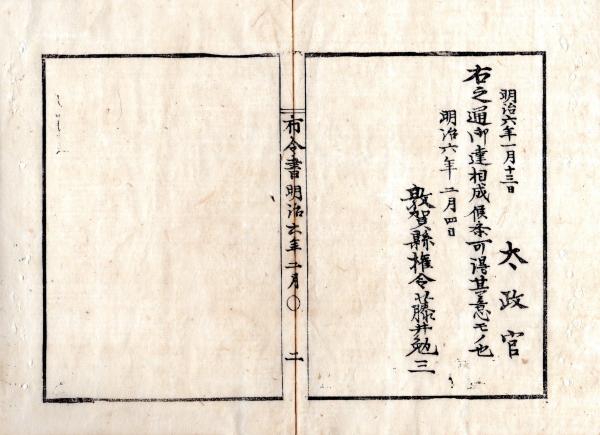 明治六年一月十三日
太政官
右之通御達相成候条可得其意モノ也
明治六年二月四日
敦賀縣権令藤井勉三
布令書明治六年二月〇 二